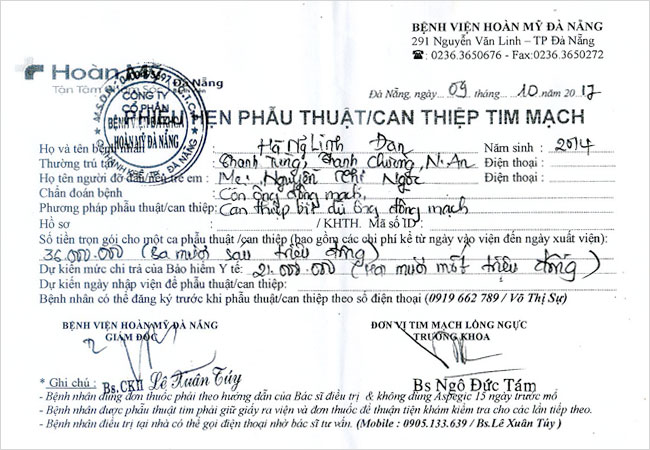 BỆNH VIỆN HOÀN MỸ ĐÀ NẴNG
291 Nguyễn Văn Linh – TP Đà Nẵng
☎: 0236.3650676 - Fax:0236.3650272
Hoàn Mỹ Đà Nẵng
Tận Tâm Sóc
CÔNG TY CỔ PHẦN BỆNH VIỆN HOÀN MỸ ĐÀ NẴNG
Đà Nẵng, ngày 09 tháng 10 năm 2017
PHIẾU HẸN PHẪU THUẬT/CAN THIỆP TIM MẠCH
Họ và tên bệnh nhân Hà Ng Linh Đan Năm sinh : 2014
Thường trú tại Thanh Tùng, Thanh Chương, N. An Điện thoại :
Họ tên người đỡ đầu nếu trẻ em : Mẹ: Nguyễn Thị Ngọc Điện thoại :
Chẩn đoán bệnh : Còn ống động mạch
Phương pháp phẫu thuật/can thiệp: Can thiệp bít dù ống động mạch
Hồ sơ : / KHTH. Mã số ID :
Số tiền trọn gói cho một ca phẫu thuật /can thiệp (bao gồm các chi phí kể từ ngày vào viện đến ngày xuất viện):
36.000.000 (Ba mươi sáu triệu đồng)
Dự kiến mức chi trả của Bảo hiểm Y tế: 21.000.000 (Hai mươi mốt triệu đồng)
Dự kiến ngày nhập viện để phẫu thuật/can thiệp:
Bệnh nhân có thể đăng ký trước khi phẫu thuật/can thiệp theo số điện thoại (0919 662 789 / Võ Thị Sự)
BỆNH VIỆN HOÀN MỸ ĐÀ NẴNG
GIÁM ĐỐC
ĐƠN VỊ TIM MẠCH LỒNG NGỰC
TRƯỞNG KHOA
Bs.CKII Lê Xuân Túy
Bs Ngô Đức Tám
* Ghi chú :
- Bệnh nhân dùng đơn thuốc phải theo hướng dẫn của Bác sĩ điều trị & không dùng Aspegic 15 ngày trước mổ
- Bệnh nhân được phẫu thuật tim phải giữ giấy ra viện và đơn thuốc để thuận tiện khám kiểm tra cho các lần tiếp theo.
- Bệnh nhân điều trị tại nhà có thể gọi điện thoại nhờ bác sĩ tư vấn. (Mobile : 0905.133.639 / Bs.Lê Xuân Túy )